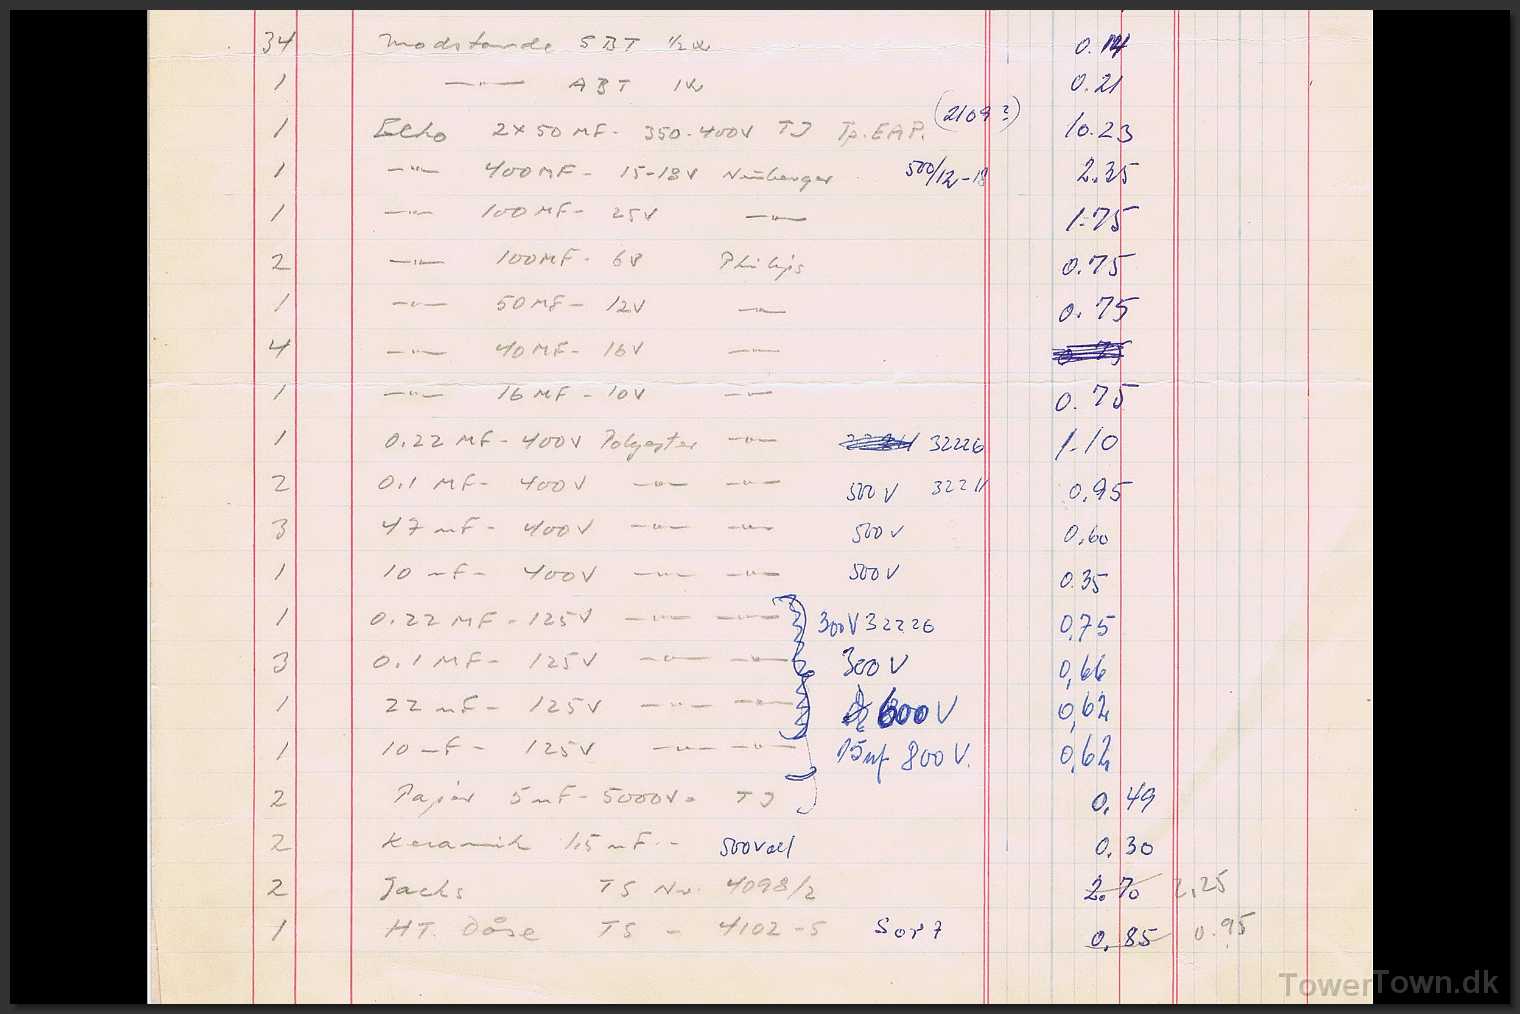 34 Modstande SBT ½W 0.14
1 —"— ABT 1W 0.21
1 Echo 2x50 MF- 350-400V TJ Tp. EAP. (2109?) 10.23
1 —"— 400MF- 15-18V 500/12-18 2.35
1 —"— 100MF- 25V —"— 1.75
2 —"— 100MF- 6V Philips 0.75
1 —"— 50MF- 12V —"— 0.75
4 —"— 40MF- 16V —"— 0.75
1 —"— 16MF- 10V —"— 0.75
1 0.22 MF- 400V Polyester —"— 32226 1.10
2 0.1 MF- 400V —"— —"— 500V 32211 0.95
3 47 nF- 400V —"— —"— 500V 0.60
1 10 nF- 400V —"— —"— 500V 0.35
1 0.22 MF- 125V —"— —"— 300V 32226 0,75
3 0.1 MF- 125V —"— —"— 300V 0,66
1 22 nF- 125V —"— —"— 600V 0,62
1 10 nF- 125V —"— —"— 15nf 800V. 0,62
2 Papir 5nF- 5000V= TJ 0.49
2 Keramik 1,5nF-- 500Volt 0.30
2 Jacks TS Nr. 4098/2 2.70 2,25
1 HT. Dåse TS - 4102-5 Sort 0.85 0.95
TowerTown.dk